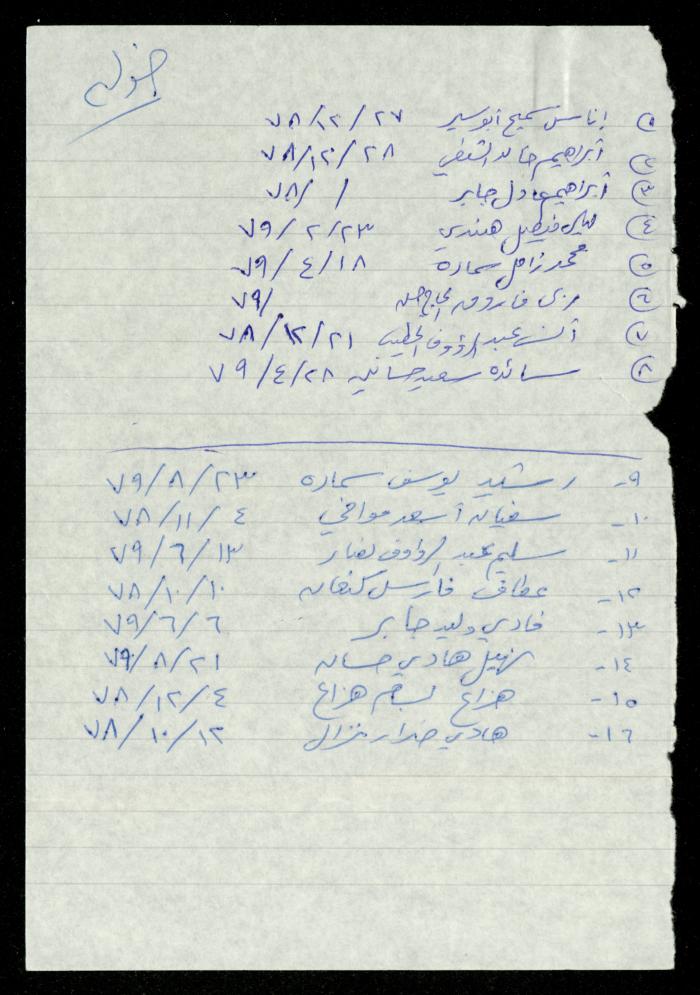 خوله
١ إيناس سميح أبو سير ٢٧/١٢/٧٨
٢ أبراهيم خالد ٢٨/١٢/٧٨
٣ أبراهيم عادل جابر / /٧٨
٤ فيصل هندي ٢٣/٢/٧٩
٥ محمد زامل سماره ١٨/٤/٧٩
٦ فاروق الحاج /٧٩
٧ أنس عبد الرؤوف الخطيب ٢١/١٢/٧٨
٨ سائده سعيد ٢٨/٤/٧٩
٩- رشيد يوسف سماره ٢٣/٨/٧٩
١٠- سفيان أسعد موافي ٤/١١/٧٨
١١- سليم عبد الرؤوف نصار ١٣/٦/٧٩
١٢- عطاف فارس كنعان ١٠/١٠/٧٨
١٣- فادي وليد جابر ٦/٦/٧٩
١٤- نهيل هادي حسان ٢١/٨/٧٩
١٥- هزاع بسام هزاع ٤/١٢/٧٨
١٦- هادي ضرار نزال ١٢/١٠/٧٨